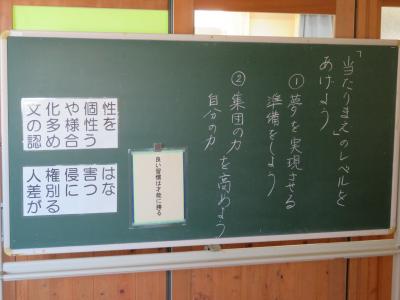 「当たりまえ」のレベルを
あげよう
①夢を実現させる
準備をしよう
②集団の力を高めよう
自分の力
良い習慣は才能に勝る
文化や個性
の多様性を
認め合う
人権侵害は
差別につな
がる